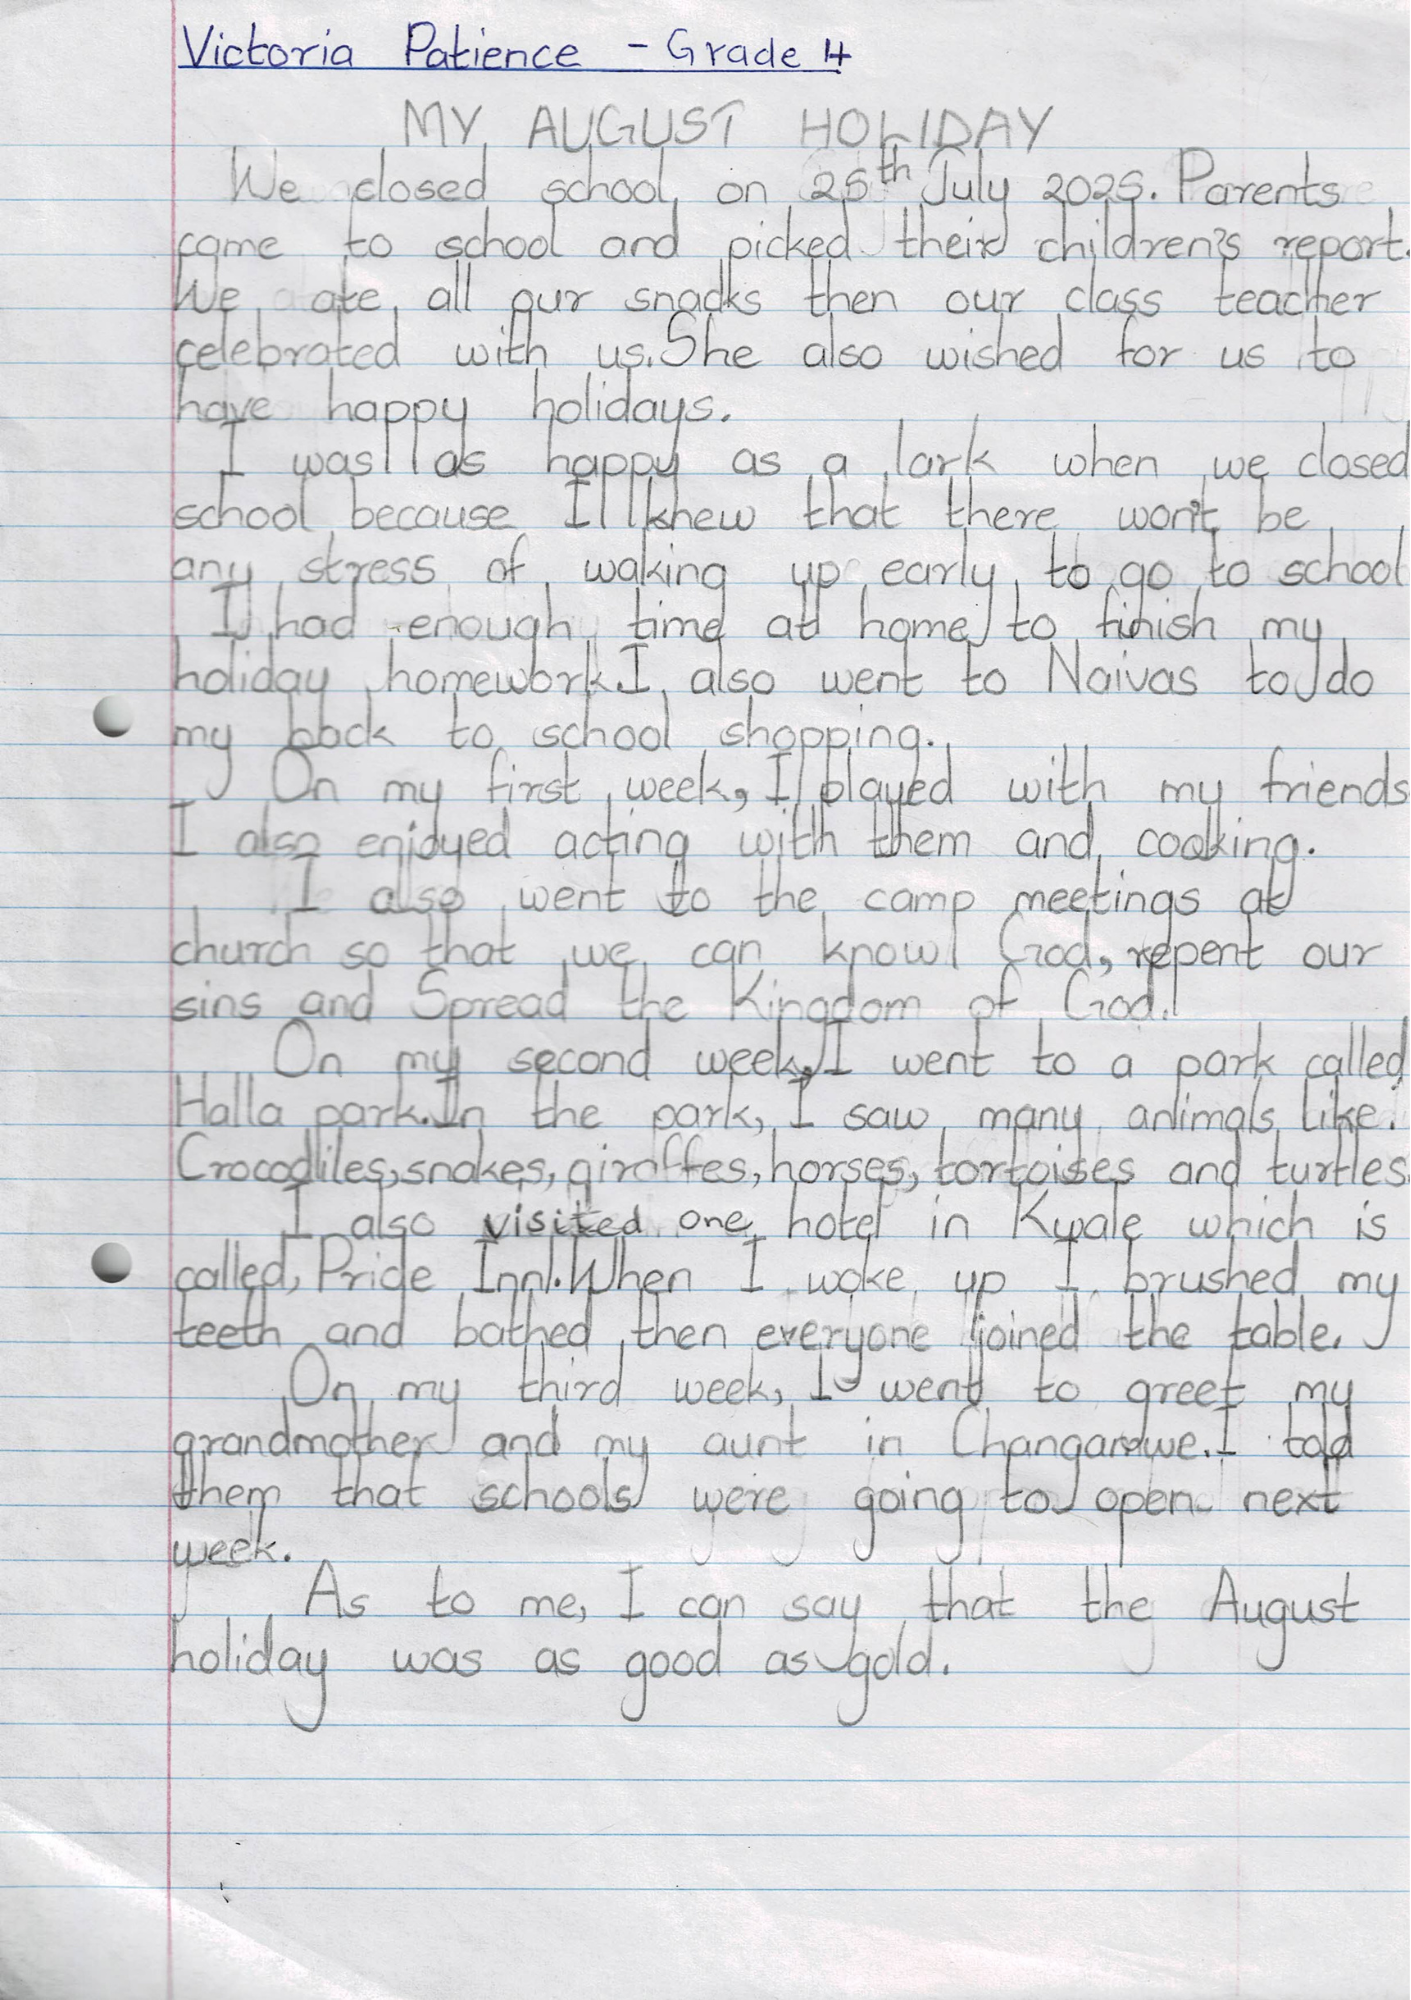 Victoria Patience - Grade 4
MY AUGUST HOLIDAY
We closed school on 25th July 2025. Parents
came to school and picked their children's report.
We ate all our snacks then our class teacher
celebrated with us. She also wished for us to
have happy holidays.
I was as happy as a lark when we closed
school because I knew that there won't be
any stress of waking up early to go to school
I had enough time at home to finish my
holiday homework. I also went to Naivas to do
my back to school shopping.
On my first week, I played with my friends
I also enjoyed acting with them and cooking.
I also went to the camp meetings at
church so that we can know God, repent our
sins and Spread the Kingdom of God.
On my second week, I went to a park called
Halla park. In the park, I saw many animals like.
Crocodiles, snakes, giraffes, horses, tortoises and turtles.
I also visited one hotel in Kwale which is
called, Pride Inn. When I woke up I brushed my
teeth and bathed then everyone joined the table.
On my third week, I went to greet my
grandmother and my aunt in Changamwe. I told
them that schools were going to open next
week.
As to me, I can say that the August
holiday was as good as gold.